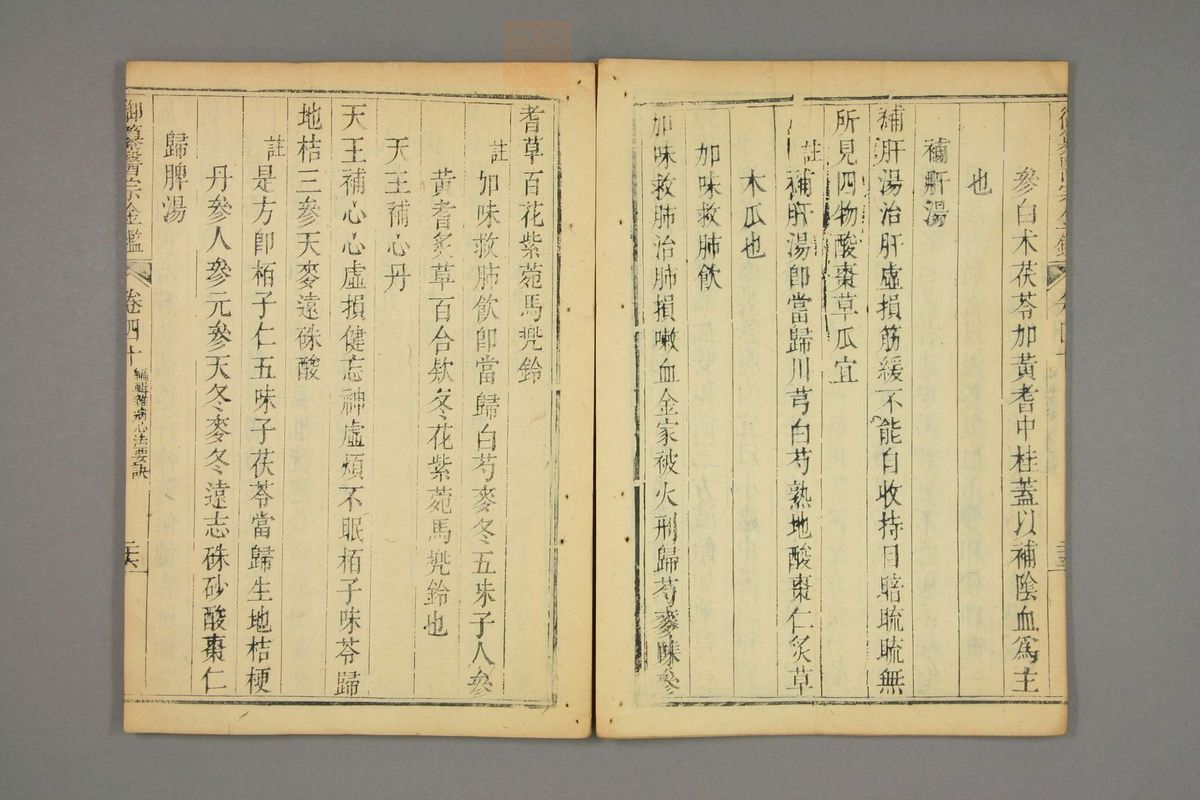 參白术茯苓加黃耆中桂蓋以補陰血爲主
也
補肝湯
補肝湯治肝虛損筋緩不能自收持目暗䀮䀮無
所見四物酸棗草瓜宜
註補肝湯卽當歸川芎白芍熟地酸棗仁炙草
木瓜也
加味救肺飲
加味救肺治肺損嗽血金家被火刑歸芍麥味參
耆草百花紫菀馬兜鈴
註加味救肺飲卽當歸白芍麥冬五味子人參
黃耆炙草百合欵冬花紫菀馬兜鈴也
天王補心丹
天王補心心虛損健忘神虛煩不眠栢子味苓歸
地桔三參天麥遠硃酸
註是方卽栢子仁五味子茯苓當歸生地桔梗
丹參人參元參天冬麥冬遠志硃砂酸棗仁
歸脾湯
御纂醫宗金鑑 卷四十 編輯雜病心法要訣 二六